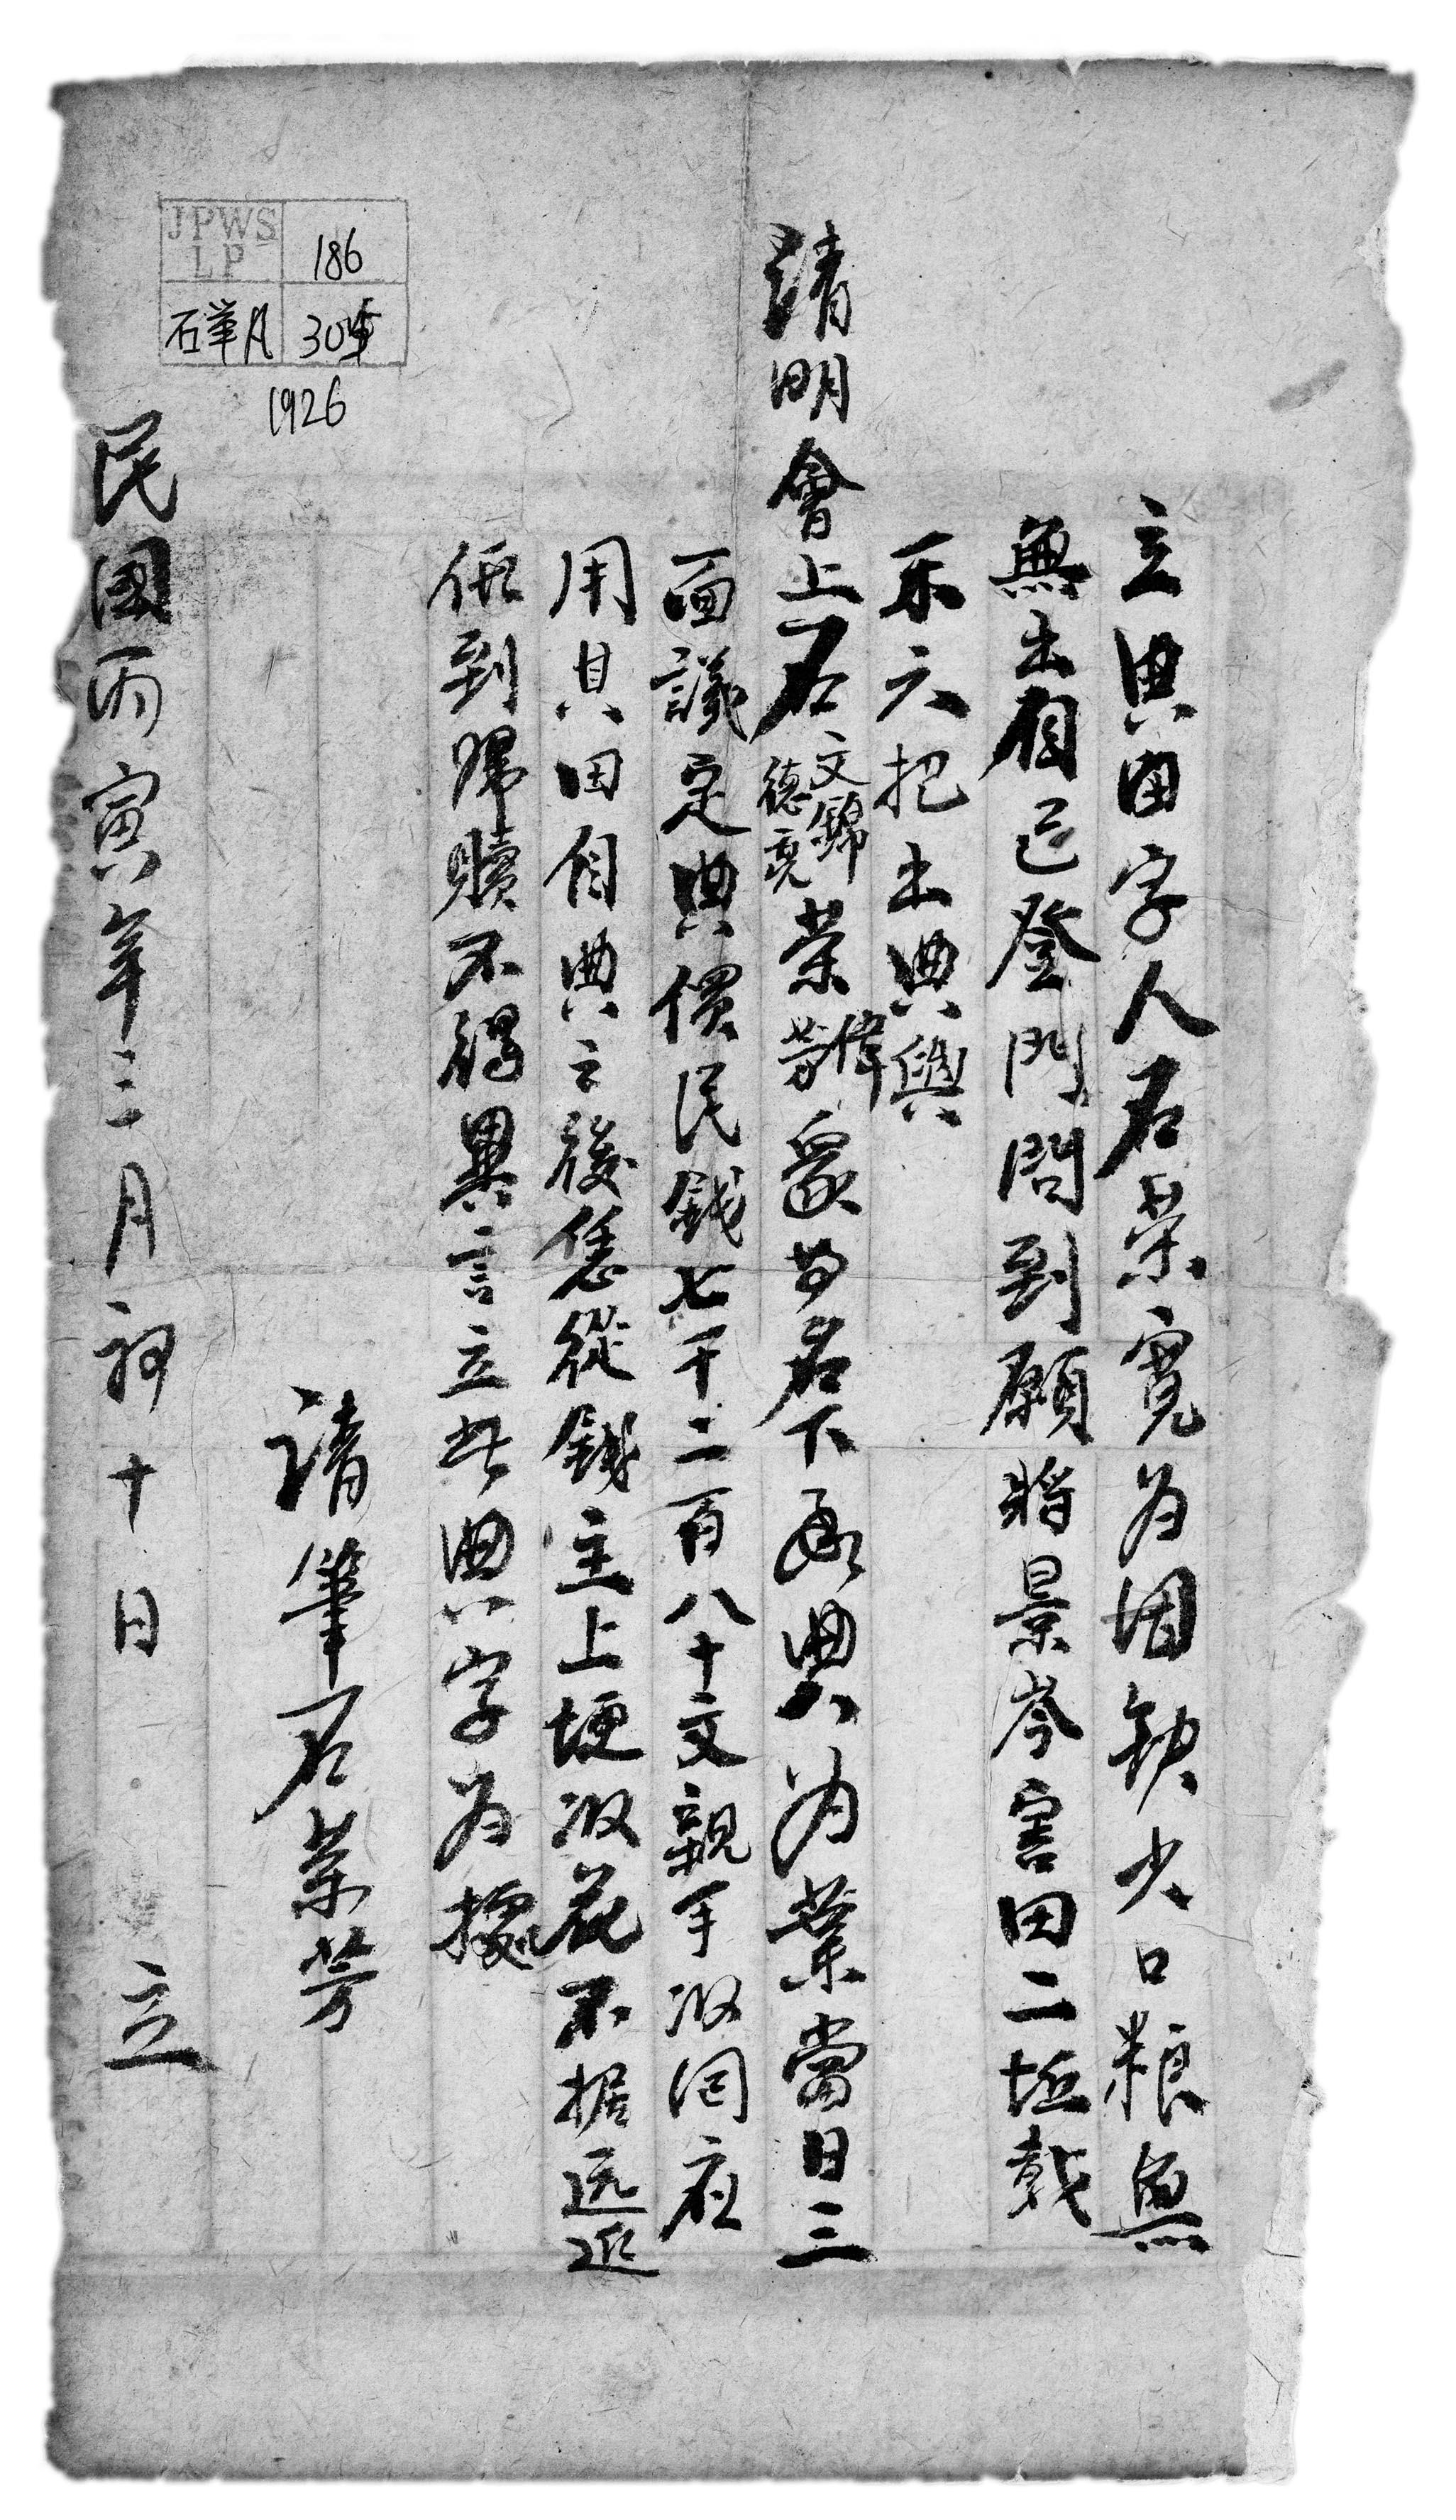 立典田字人君榮寬为因缺少口粮無
無出自己登門問到願將景岑害田二坵載
禾六把出典與
清明會上君文錦德亮榮偉芳衆等名下承典为業當日三
面議定典價民錢七千二百八十文親手收囘应
用其田自典之後恁從錢主上埂收花不拠远近
價到歸贖不得異言立此典字为據
請筆君榮芳
民國丙寅年三月初十日 立
JPWS LP 186
石華月 305
1926